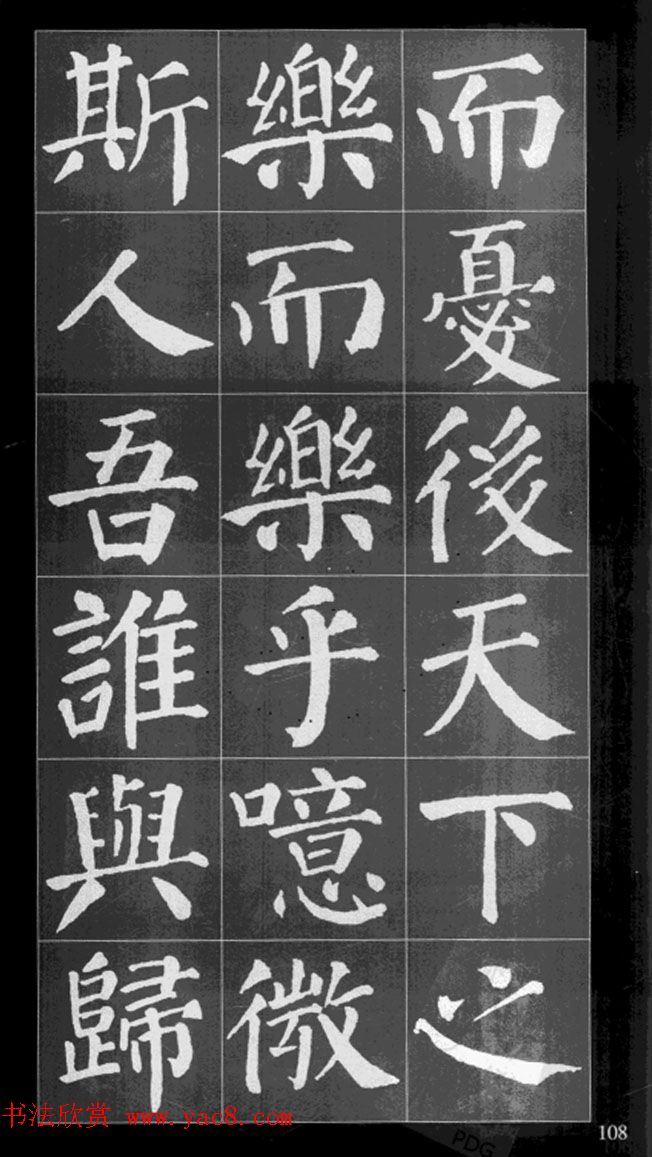 而憂後天下之
樂而樂乎噫微
斯人吾誰與歸
书法欣赏 www.yac8.com
PDG
108